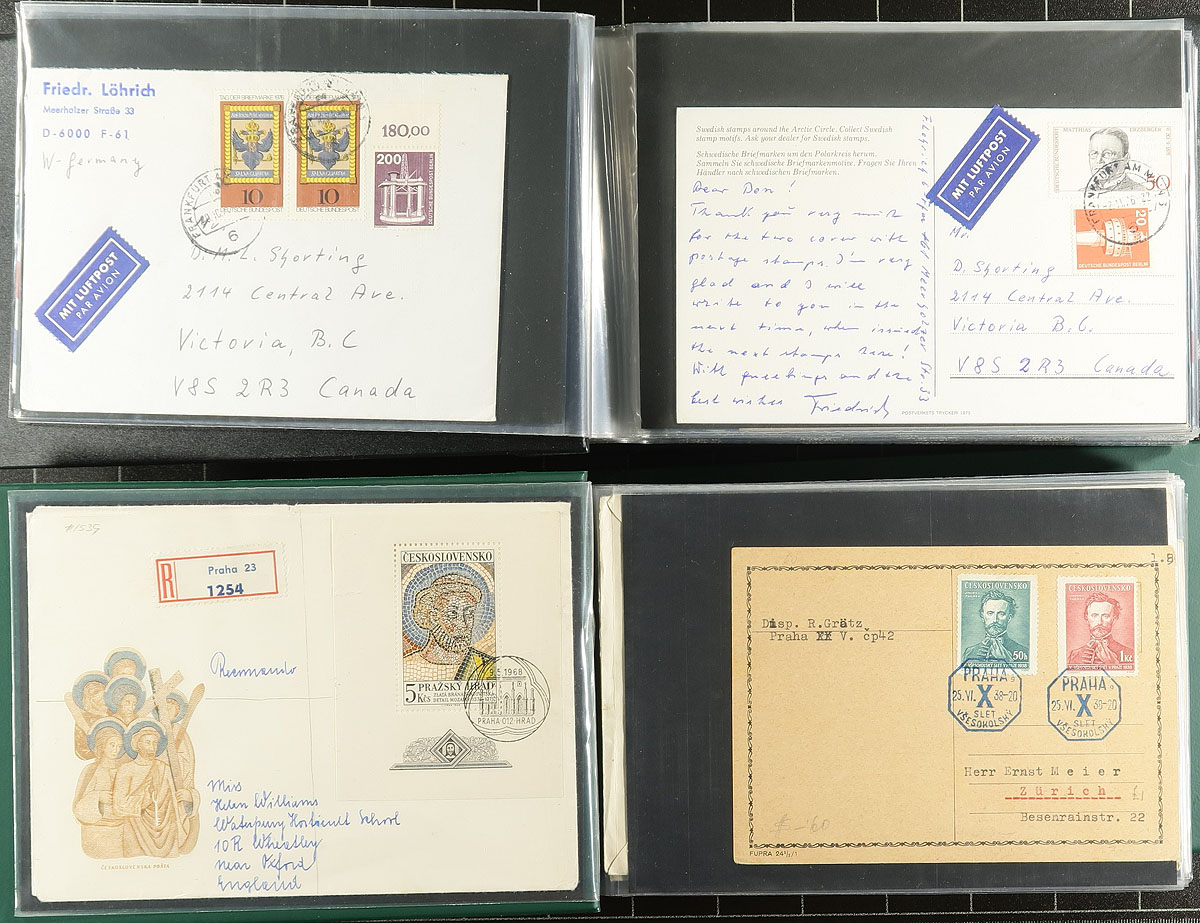 Friedr. Löhrich
Meerholzer Straße 33
D-6000 F-61
W-Germany
TAG DER BRIEFMARKE 1976
10
DEUTSCHE BUNDESPOST
10
DEUTSCHE BUNDESPOST
180,00
200
DEUTSCHE BUNDESPOST BERLIN
FRANKFURT
6
MIT LUFTPOST
PAR AVION
D.M.L. Shorting
2114 Central Ave.
Victoria, B.C
V8S 2R3 Canada
Swedish stamps around the Arctic Circle. Collect Swedish
stamp motifs. Ask your dealer for Swedish stamps.
Schwedische Briefmarken um den Polarkreis herum.
Sammeln Sie schwedische Briefmarkenmotive. Fragen Sie Ihren
Händler nach schwedischen Briefmarken.
Dear Don!
Thank you very much
for the two cover with
postage stamps. I'm very
glad and I will
write to you in the
next time, when
the next stamps here!
With greetings and the
best wishes Friedrich
POSTVERKETS TRYCKERI 1975
MIT LUFTPOST
PAR AVION
MATTHIAS ERZBERGER
DEUTSCHE BUNDESPOST
50
FRANKFURT AM MAIN
20
DEUTSCHE BUNDESPOST BERLIN
Mr.
D. Shorting
2114 Central Ave.
Victoria B.C.
V8S 2R3 Canada
#1539
R Praha 23
1254
ČESKOSLOVENSKO
5 Kčs PRAŽSKÝ HRAD
ZLATÁ BRÁNA
DETAIL MOZAIKY
9.5.1968
PRAHA 012-HRAD
Recommando
Miss
Helen Williams
Waterpery Horticult School
10R Wheatley
near Oxford
England
1.8
Disp. R.Grätz
Praha XX V. čp42
ČESKOSLOVENSKO
50h
ČESKOSLOVENSKO
1Kč
PRAHA
25.VI. X 38-20
SLET
VŠESOKOLSKÝ
PRAHA
25.VI. X 38-20
SLET
VŠESOKOLSKÝ
Herr Ernst Meier
Zürich
Besenrainstr. 22
FUPRA 24